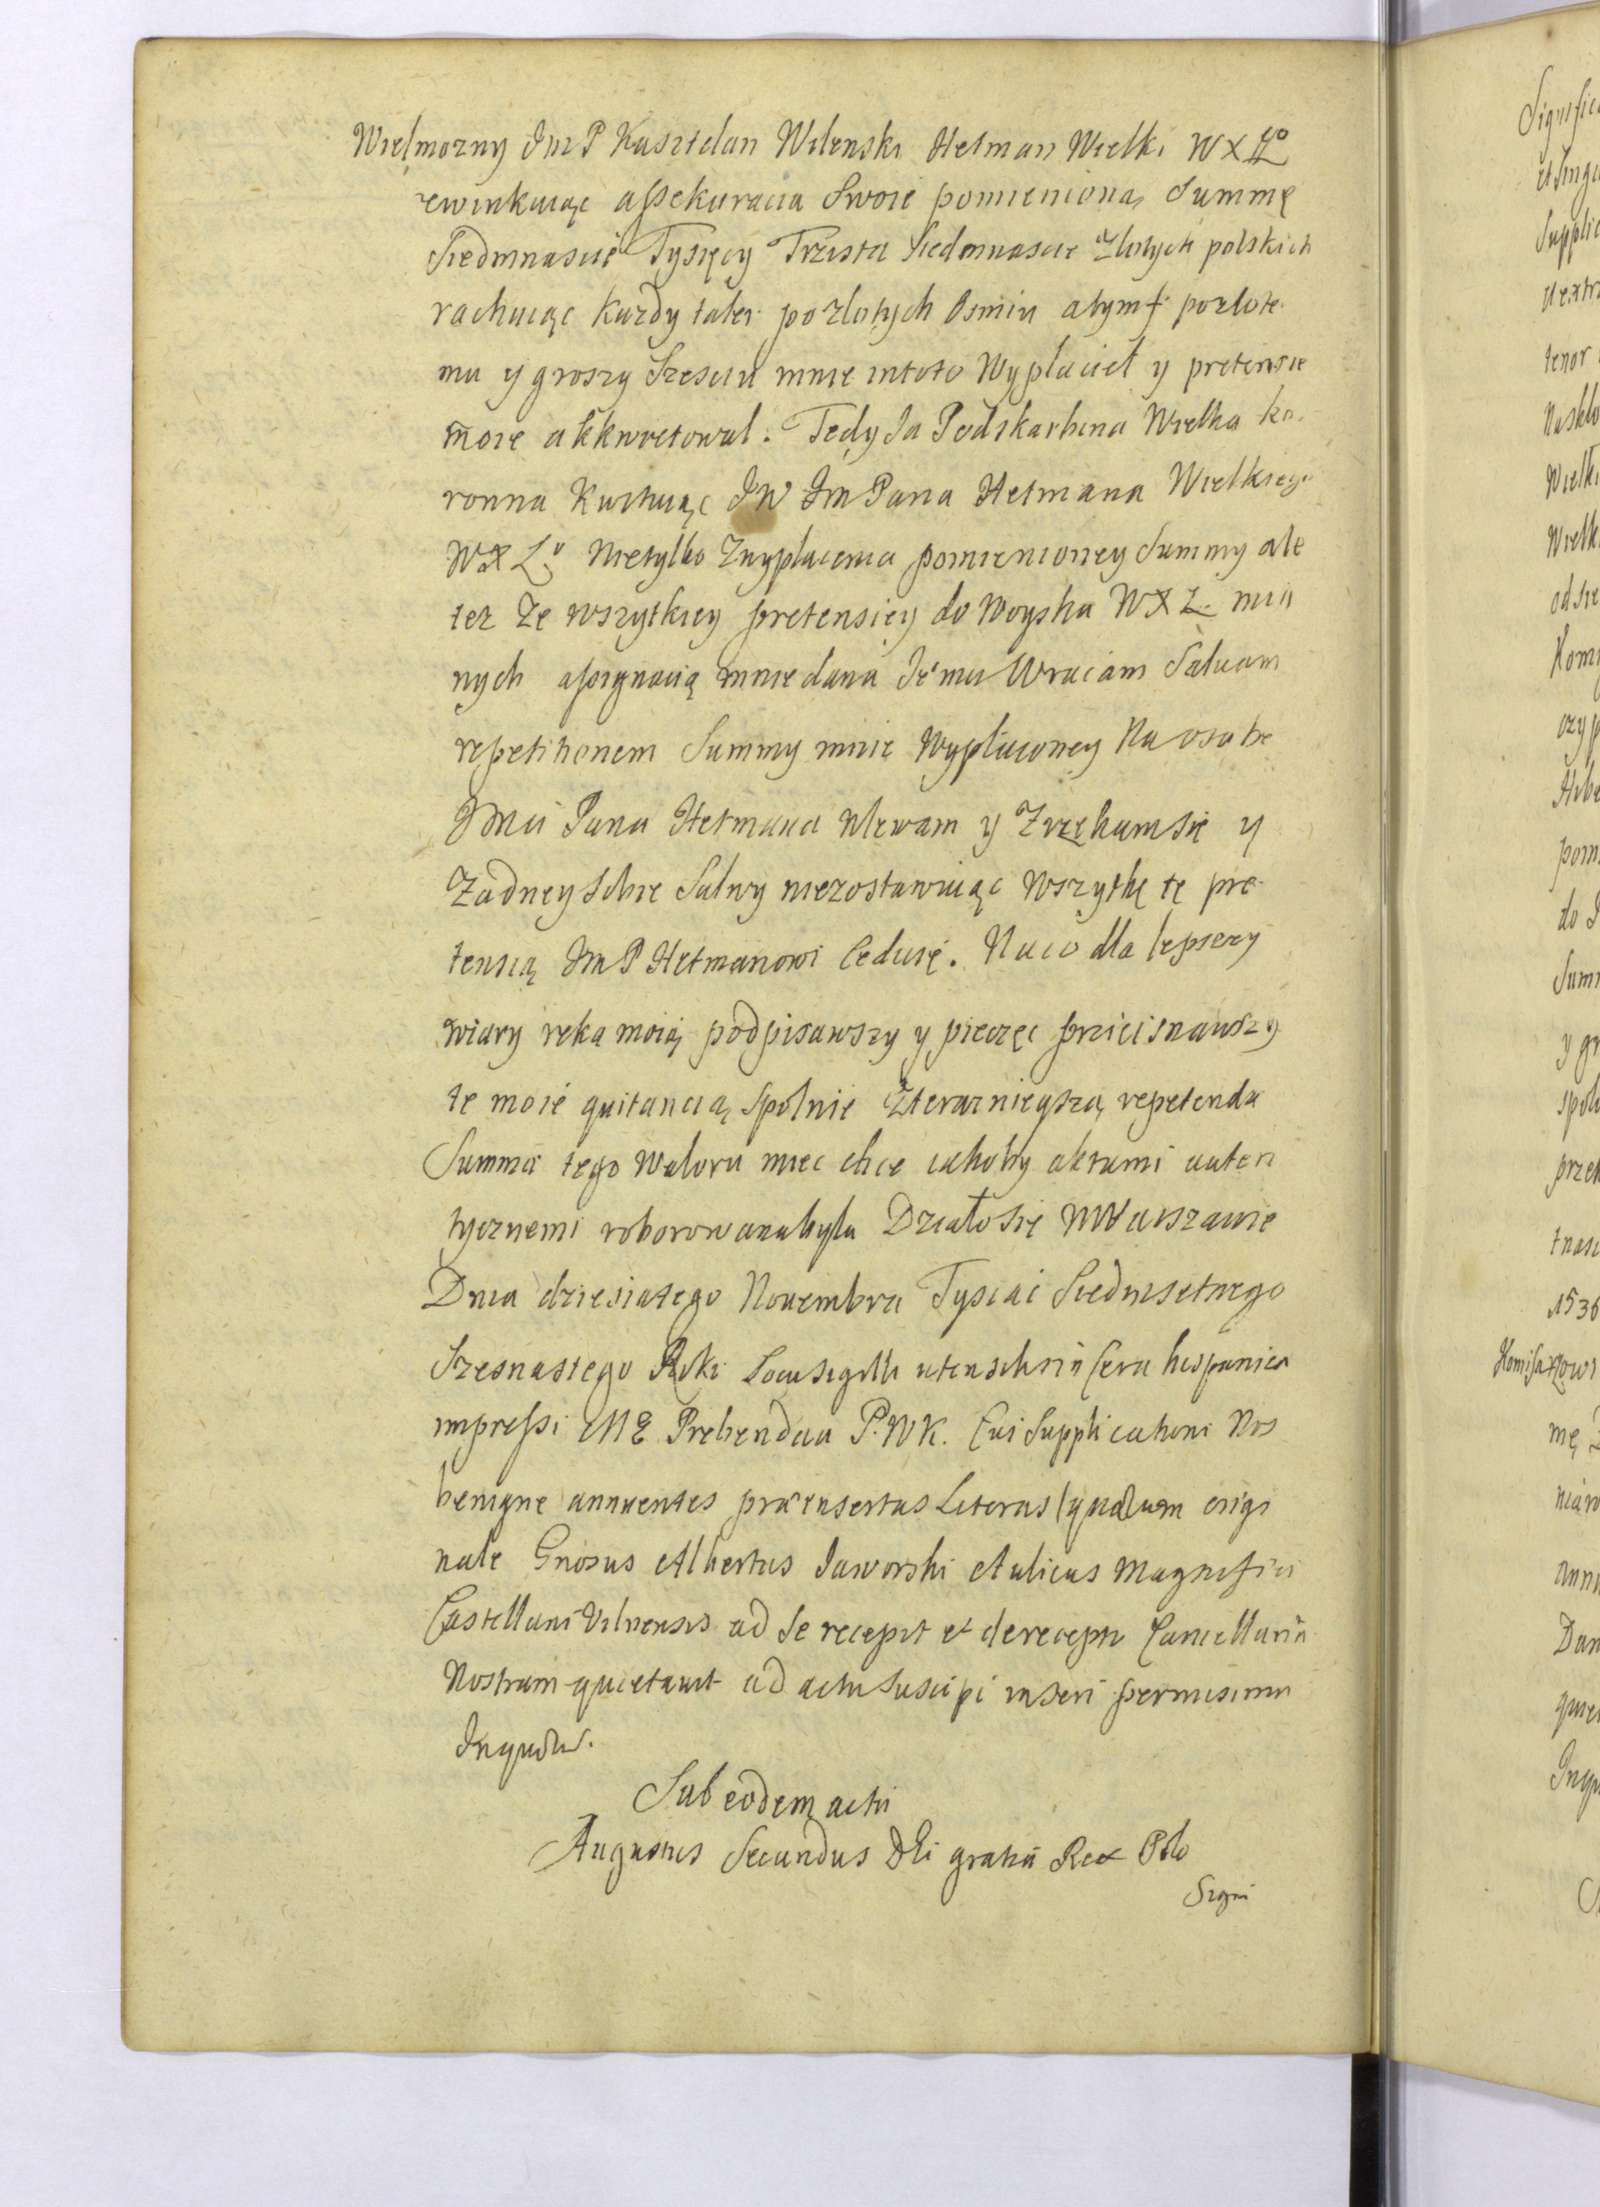 Wielmozny Jm P Kasztelan Wilenski Hetman Wielki W X Lo
ewinkuiąc assekuracia Swoie pomieniona, Summę
Siedmnascie Tysięcy Trzista Siedmnascie Zlotych polskich
rachuiąc kazdy taler po zlotych Osmiu a tymf po zlote
mu y groszy Szesciu mnie in toto Wyplaciel y pretensie
moie akkwietowal. Tedy Ja Podskarbina Wielka ko
ronna Kwituiąc JW Jm Pana Hetmana Wielkiego
W X L. Nietylko Zwyplacenia pomienioney Summy ale
tez Ze wszytkiey pretensiey do Woyska W X L. mia
nych assignacią mnie dana Jemu Wracam Salvam
repetitionem Summy mnie Wyplaconey Na osobe
Jmci Pana Hetmana Wlewam y Zrzekam sie y
Zadney sobie Salwy niezostawuiąc Wszytkę tę pre
tensią Jm P Hetmanowi Ceduię. Naco dla lepszey
wiary ręką moią podpisawszy y pieczęc przicisnawszy
te moie quitancią spolnie Zteraznieyszą repetenda
Summa tego Waloru miec chce iakoby aktami auten
tycznemi roborowana byla Działo się W Warszawie
Dnia dziesiatego Novembra Tysiac Siedmsetnego
Szesnastego Roku Locus sigilli utensibris in Cera hispanica
impressi M E Prebendaa P. W K. Cui Supplicationi Nos
benigne annuentes præinsertas Literas (quarum origi
nale Gnosus Albertus Jaworski Aulicus Magnifici
Castellani Vilnensis ad se recepit et de recepto Cancellaria
Nostram quietavit ad acta suscipi inseri permisimus
In quoru.
Sub eodem actu
Augustus Secundus Dei gratia Rex Polo
Signi